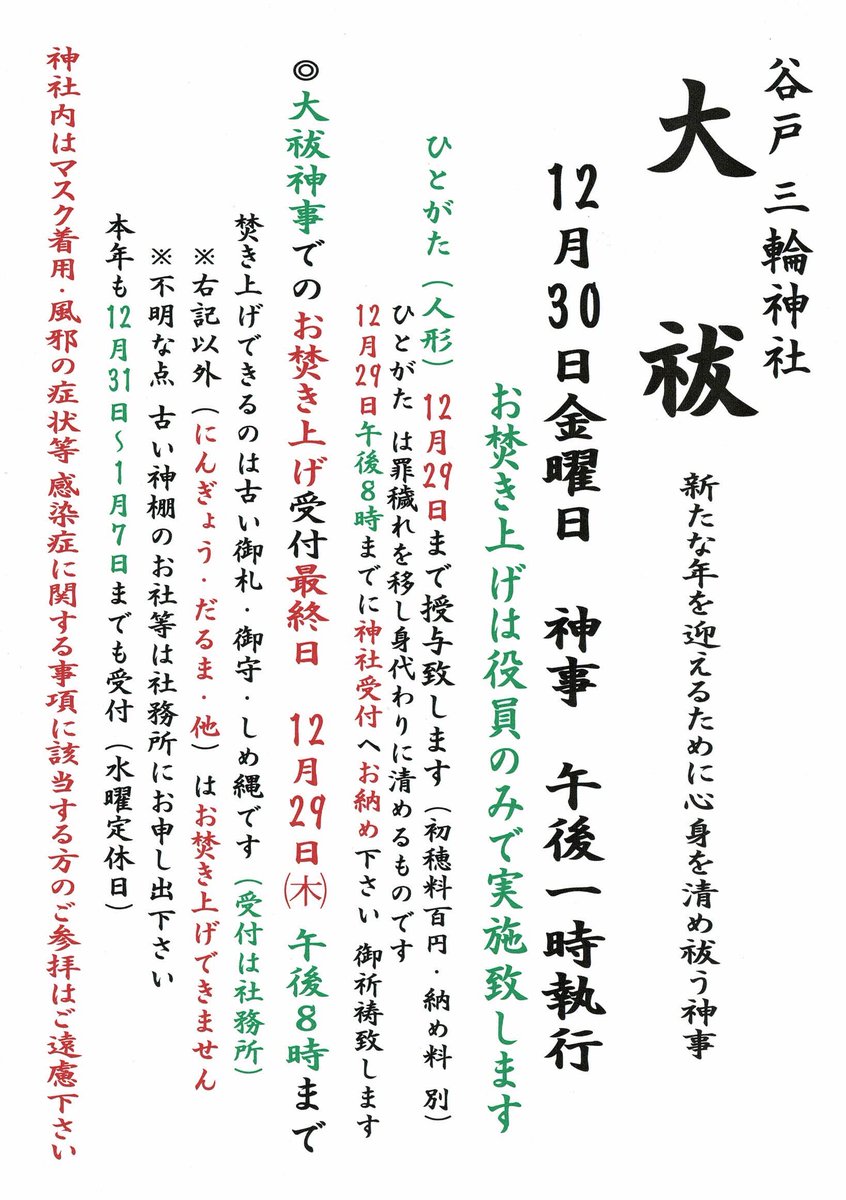 谷戸 三輪神社
大祓
新たな年を迎えるために心身を清め祓う神事
12月30日金曜日 神事 午後一時執行
お焚き上げは役員のみで実施致します
ひとがた（人形）12月29日まで授与致します（初穂料百円・納め料 別）
ひとがた は罪穢れを移し身代わりに清めるものです
12月29日午後8時までに神社受付へお納め下さい 御祈祷致します
◎大祓神事でのお焚き上げ受付最終日 12月29日㈭午後8時まで
焚き上げできるのは古い御札・御守・しめ縄です（受付は社務所）
※右記以外（にんぎょう・だるま・他）はお焚き上げできません
※不明な点 古い神棚のお社等は社務所にお申し出下さい
本年も12月31日～1月7日までも受付（水曜定休日）
神社内はマスク着用・風邪の症状等 感染症に関する事項に該当する方のご参拝はご遠慮下さい